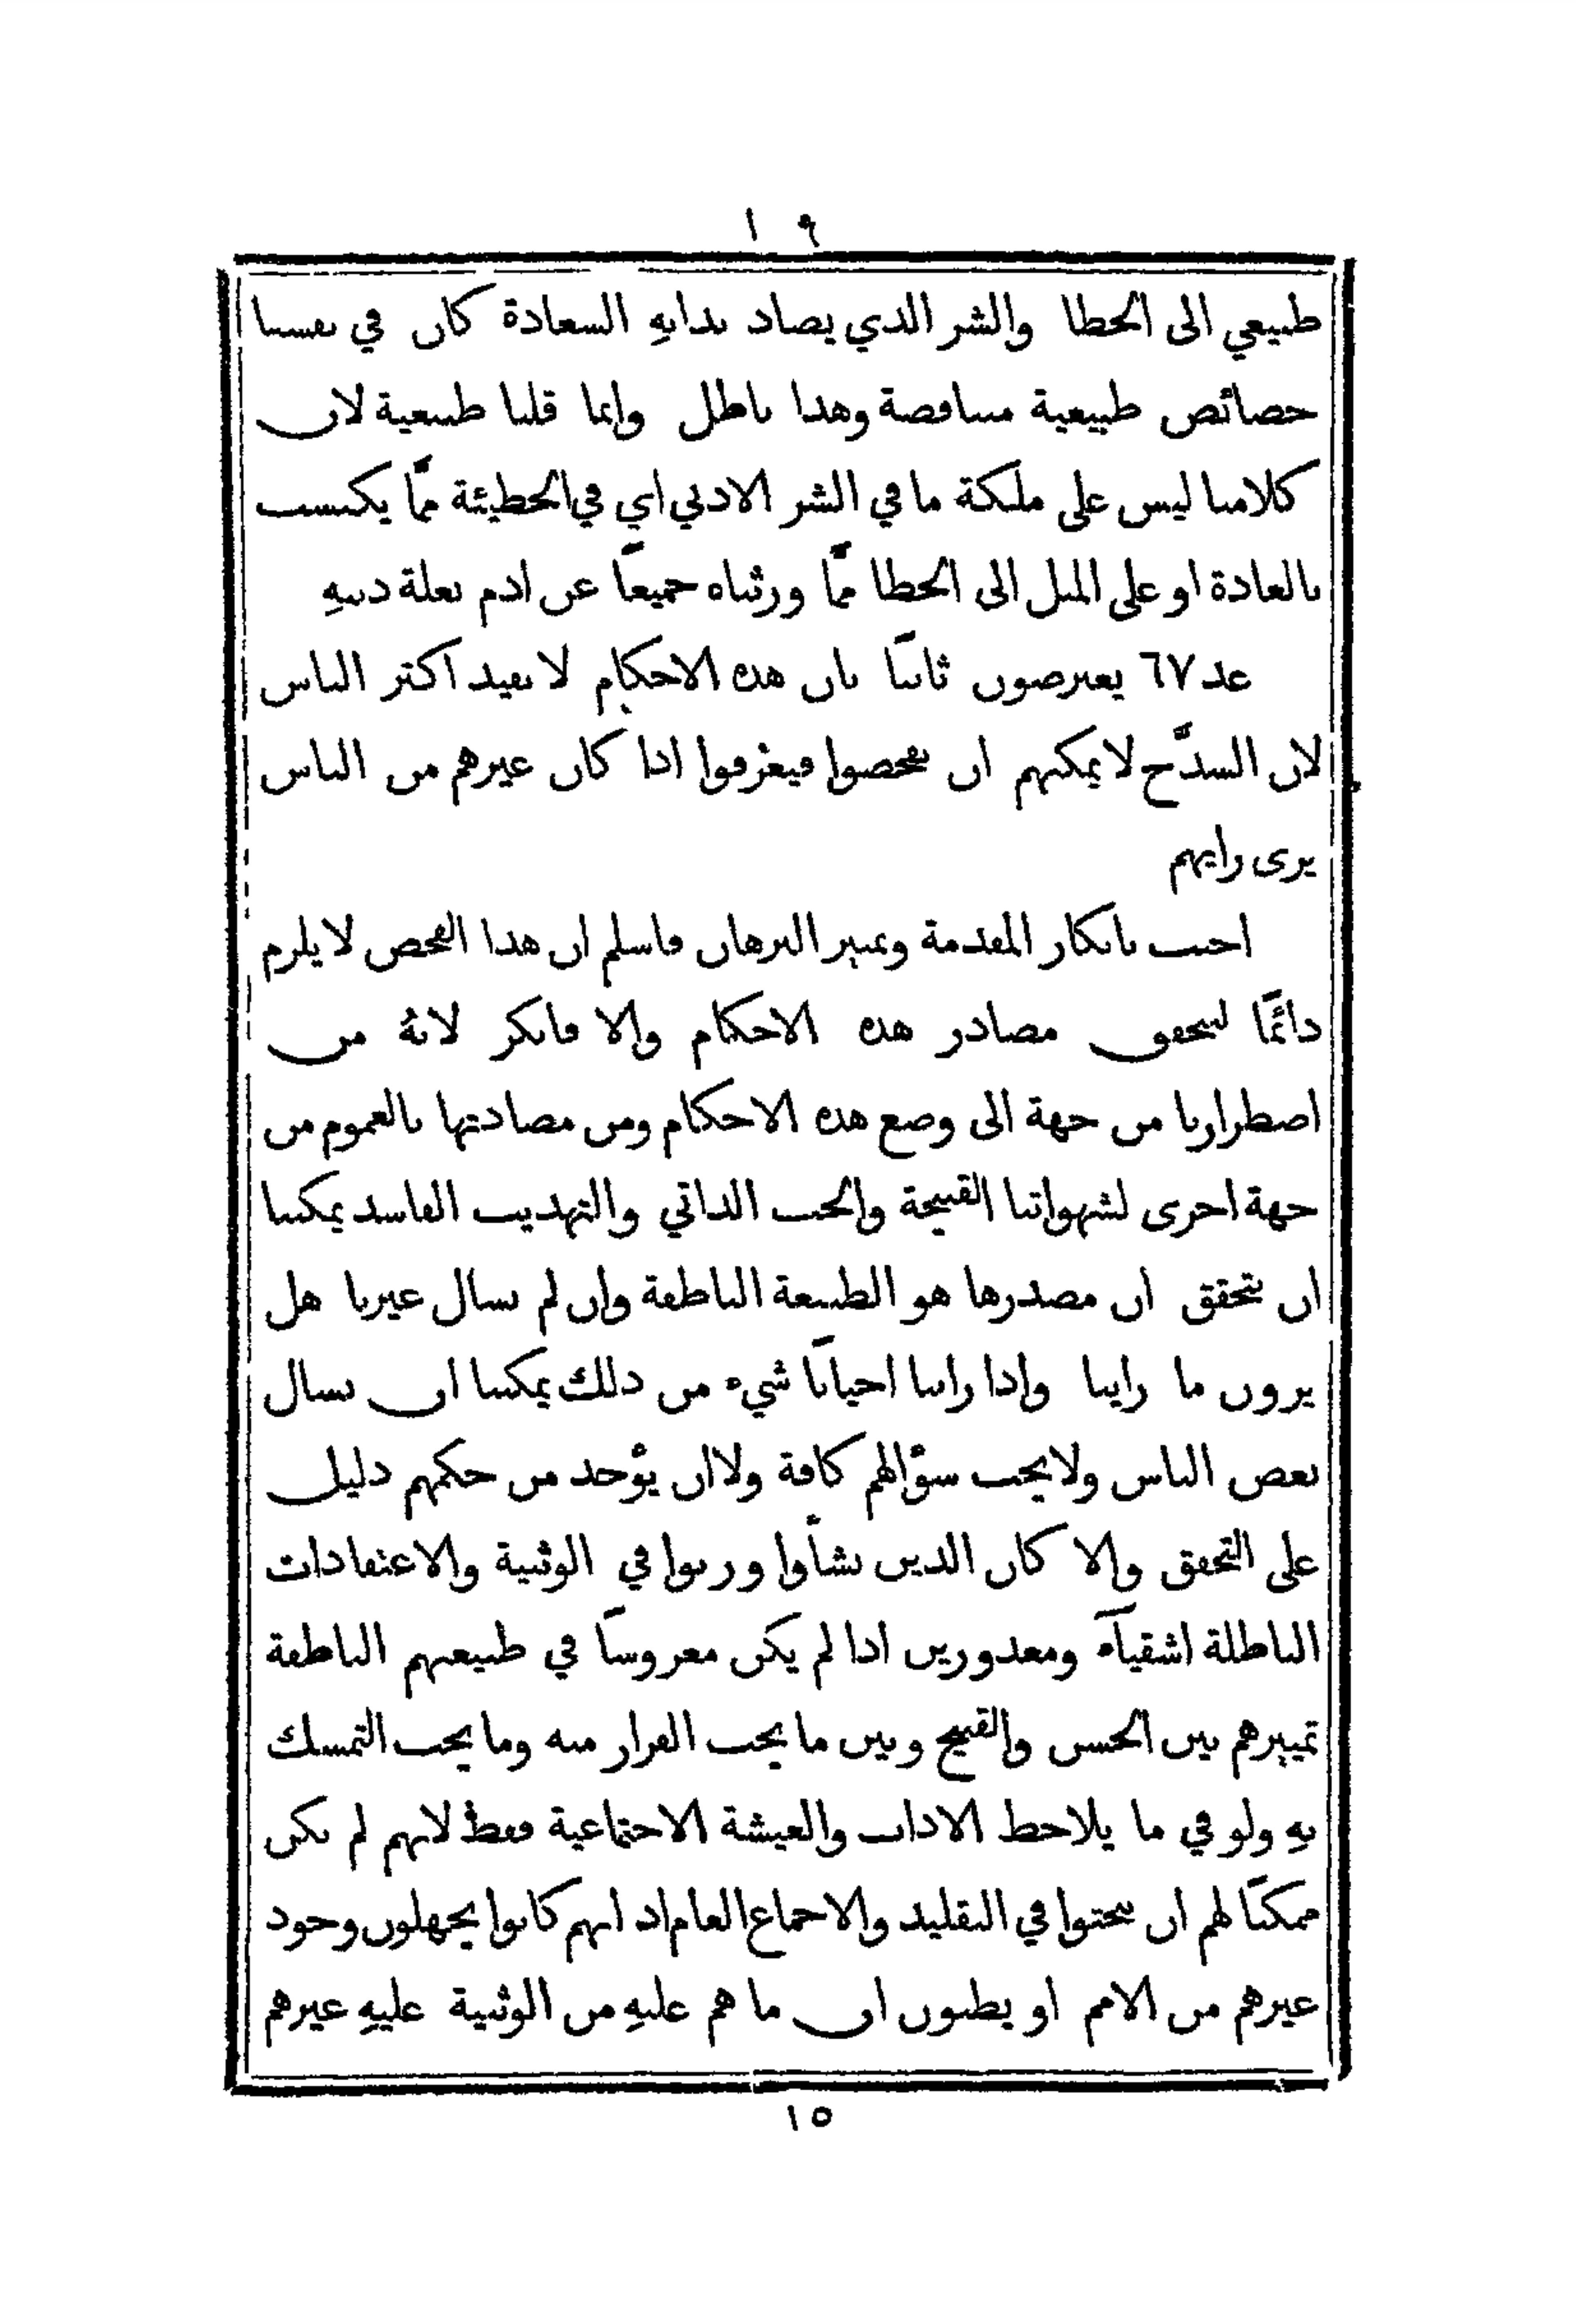 ١ ٩
طبيعي الى الخطا والشر الذي يضاد بذاتهِ السعادة كان في نفسنا
خصائص طبيعية متناقضة وهذا باطل وانما قلنا طبيعية لان
كلامنا ليس على ملكة ما في الشر الادبي اي في الخطيئة ممَّا يكتسب
بالعادة او على الميل الى الخطا ممَّا ورثناه جميعًا عن ادم بعلة ذنبهِ
عد ٦٧ يعترضون ثانيًا بان هذه الاحكام لا تفيد اكثر الناس
لان السذَّج لا يمكنهم ان يفحصوا فيعرفوا اذا كان غيرهم من الناس
يرى رايهم
اجيب بانكار المقدمة وتمييز البرهان فاسلم ان هذا الفحص لا يلزم
دائمًا لتحقق مصادر هذه الاحكام والا فانكر لانهُ من
اضطرارنا من جهة الى وضع هذه الاحكام ومن مضادتها بالعموم من
جهة اخرى لشهواتنا القبيحة والحب الذاتي والتهذيب الفاسد يمكننا
ان نتحقق ان مصدرها هو الطبيعة الناطقة وان لم نسال غيرنا هل
يرون ما راينا واذا راينا احيانًا شيء من ذلك يمكننا ان نسال
بعض الناس ولا يجب سؤالهم كافة ولا ان يؤخذ من حكمهم دليل
على التحقق والا كان الذين نشأوا وربوا في الوثنية والاعتقادات
الباطلة اشقيآء ومعذورين اذا لم يكن مغروسًا في طبيعتهم الناطقة
تمييزهم بين الحسن والقبيح وبين ما يجب الفرار منه وما يجب التمسك
بهِ ولو في ما يلاحظ الاداب والعيشة الاجتماعية فقط لانهم لم يكن
ممكنًا لهم ان يبحثوا في التقليد والاجماع العام اذ انهم كانوا يجهلون وجود
غيرهم من الامم او يظنون ان ما هم عليهِ من الوثنية عليهِ غيرهم
١٥